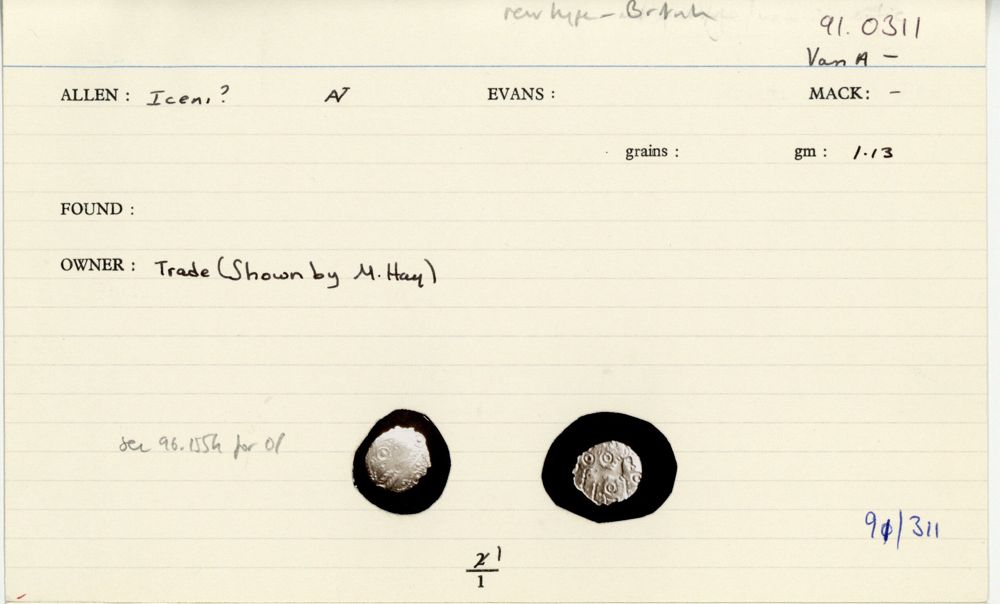 new type - British
91.0311
Van A -
ALLEN : Iceni? AV EVANS : MACK: -
grains : gm : 1.13
FOUND :
OWNER : Trade (Shown by M. Hay)
see 96.
for
91/311
1
1